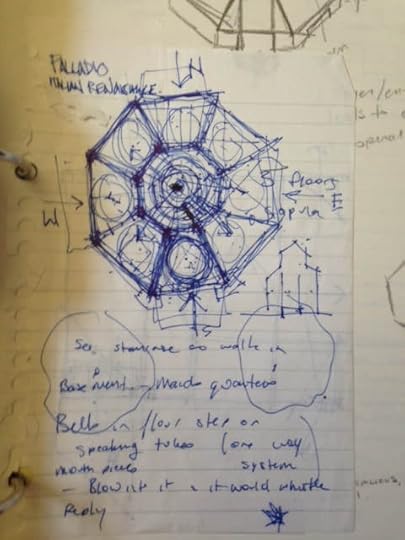 PALLADIO
ITALIAN RENAISSANCE.
N
W
3 floors
E
cupula
S
See staircase as walk in
Basement - Maids quarters
Bells in floor step on
speaking tubes (one way
mouth piece system
- Blow into it & it would whistle
Reply